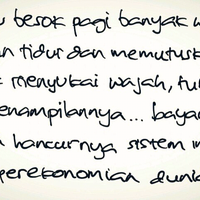 besok pagi banyak
tidur dan memutusk
menyukai wajah, tu
enampilannya... baya
hancurnya sistem
perekonomian dunia